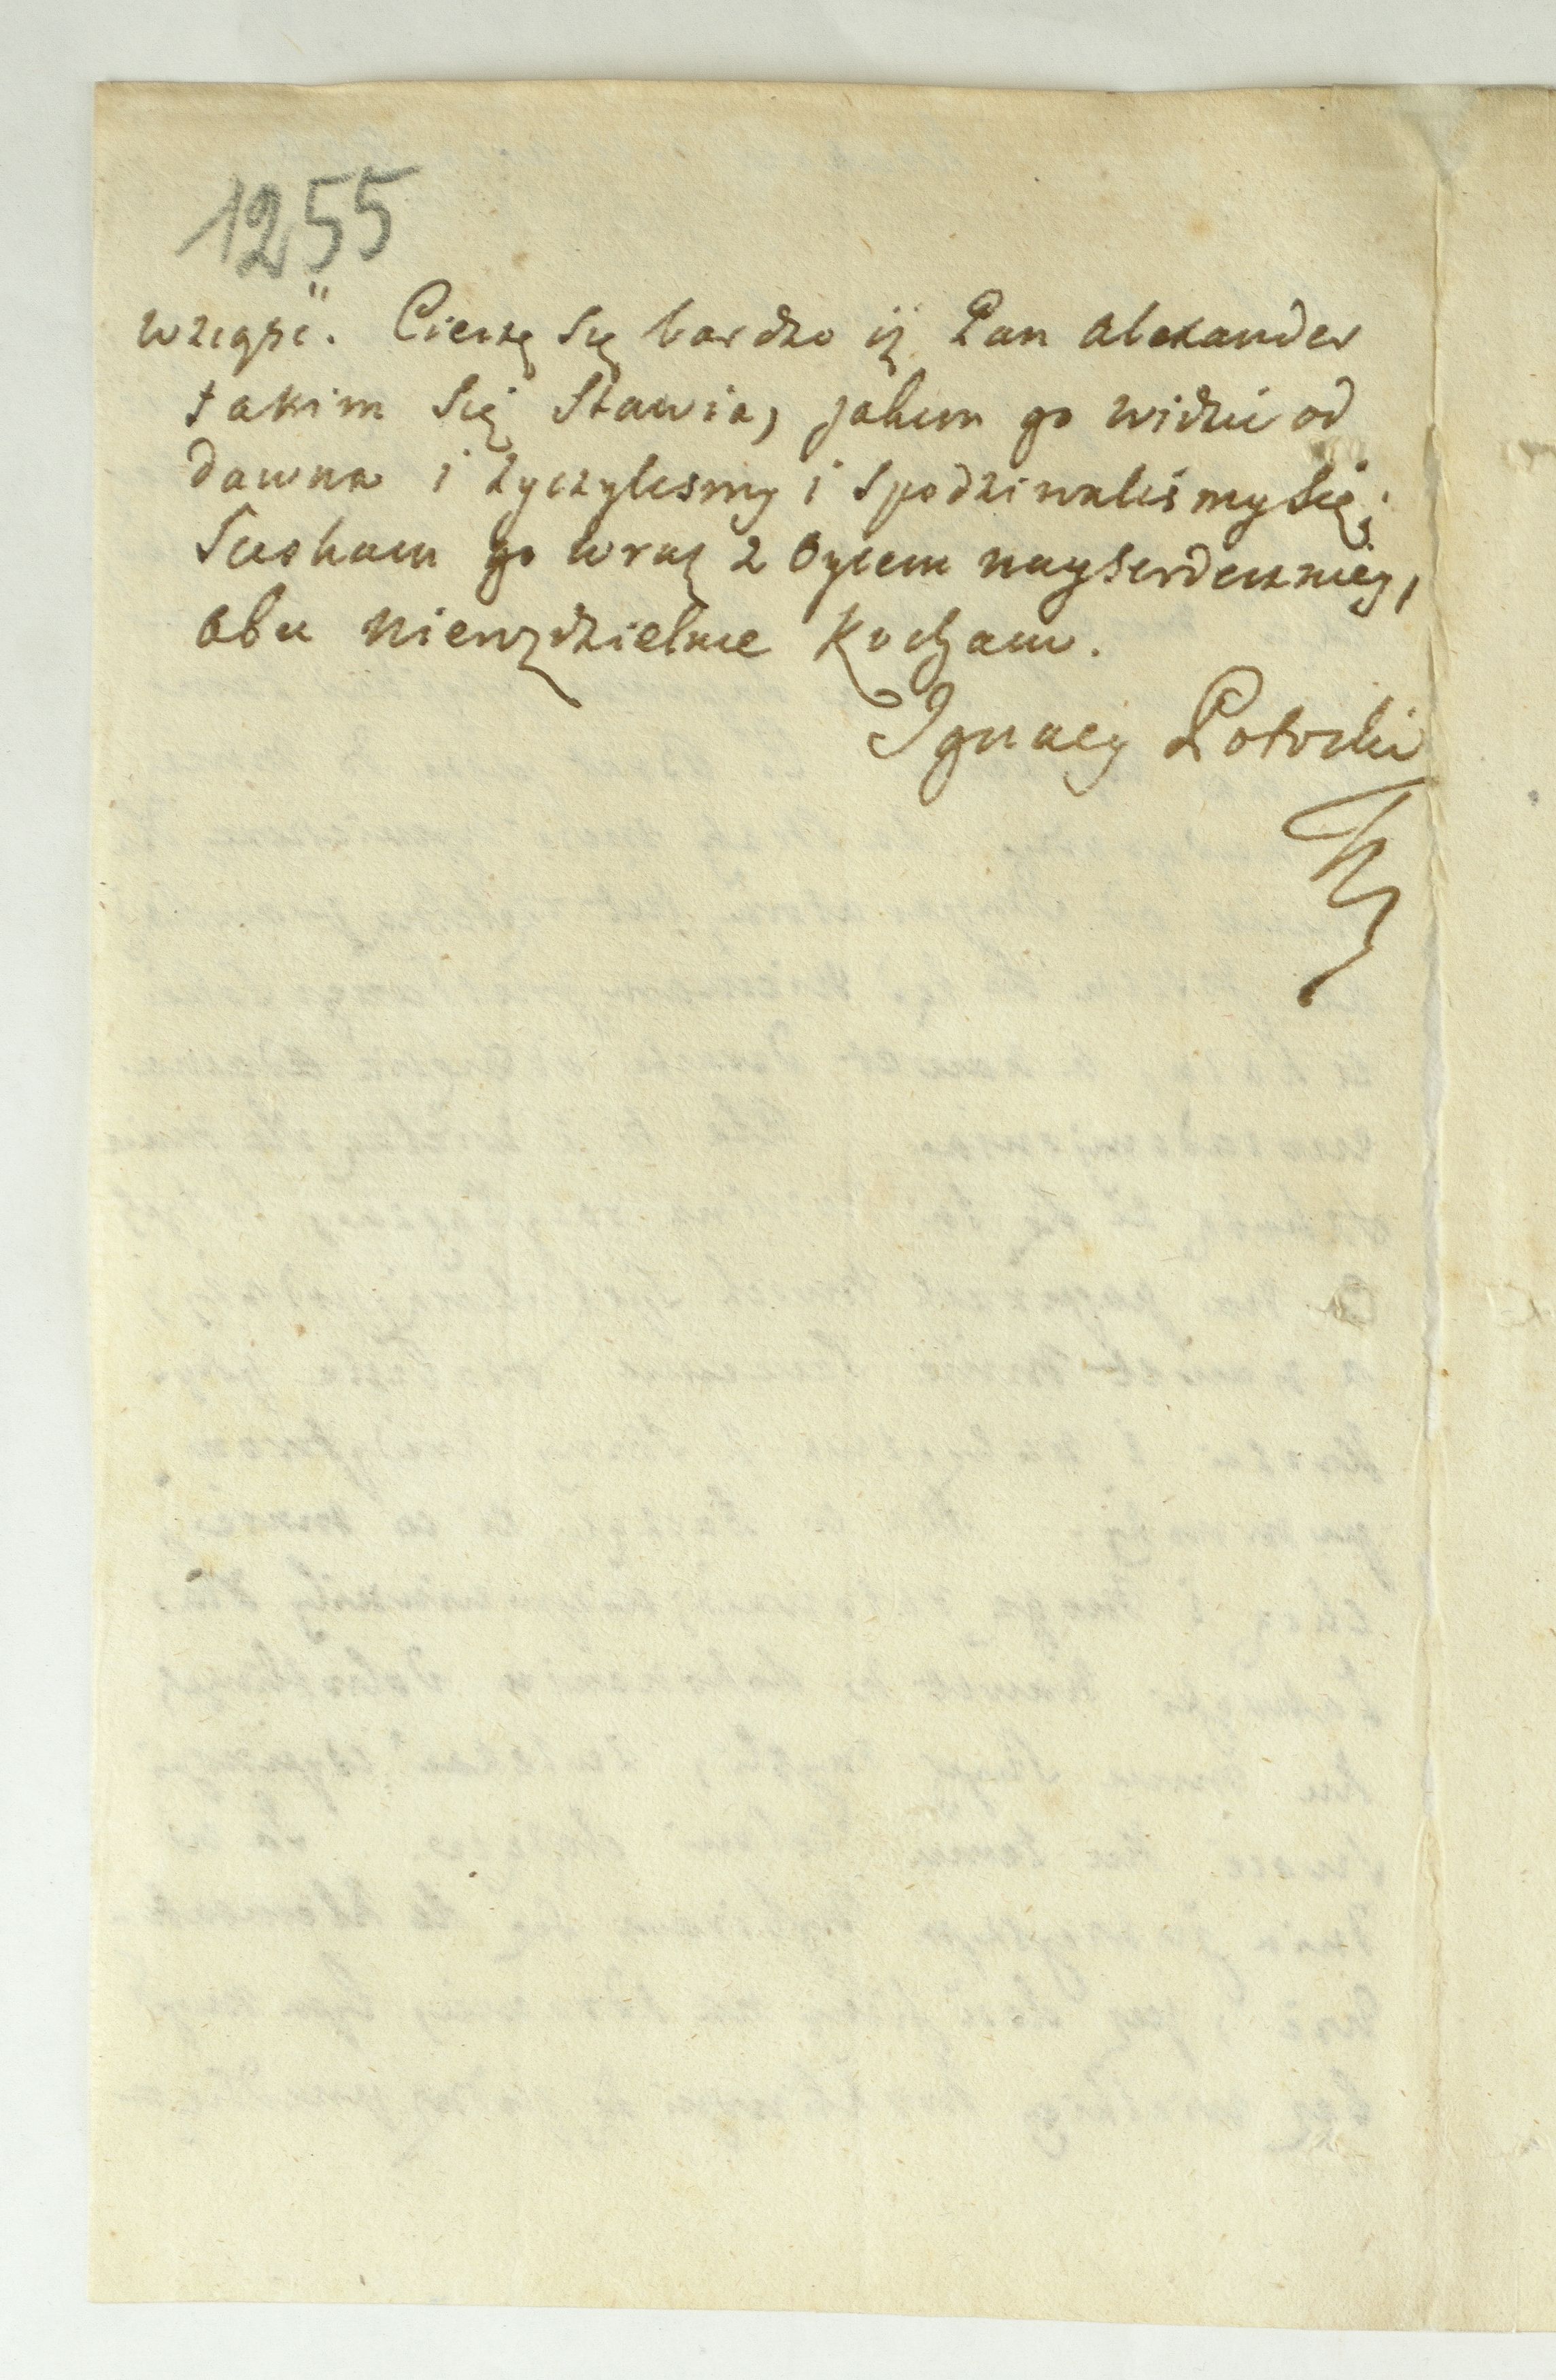 1255
wziąść. Cieszę się bardzo iż Pan Alexander
takim się stawia, jakim go widzieć od
dawna i życzylismy i spodziwaliśmy się;
Sciskam go wraz z Oycem nayserdeczniey,
obu nierozdzielnie kocham.
Ignacy Potocki